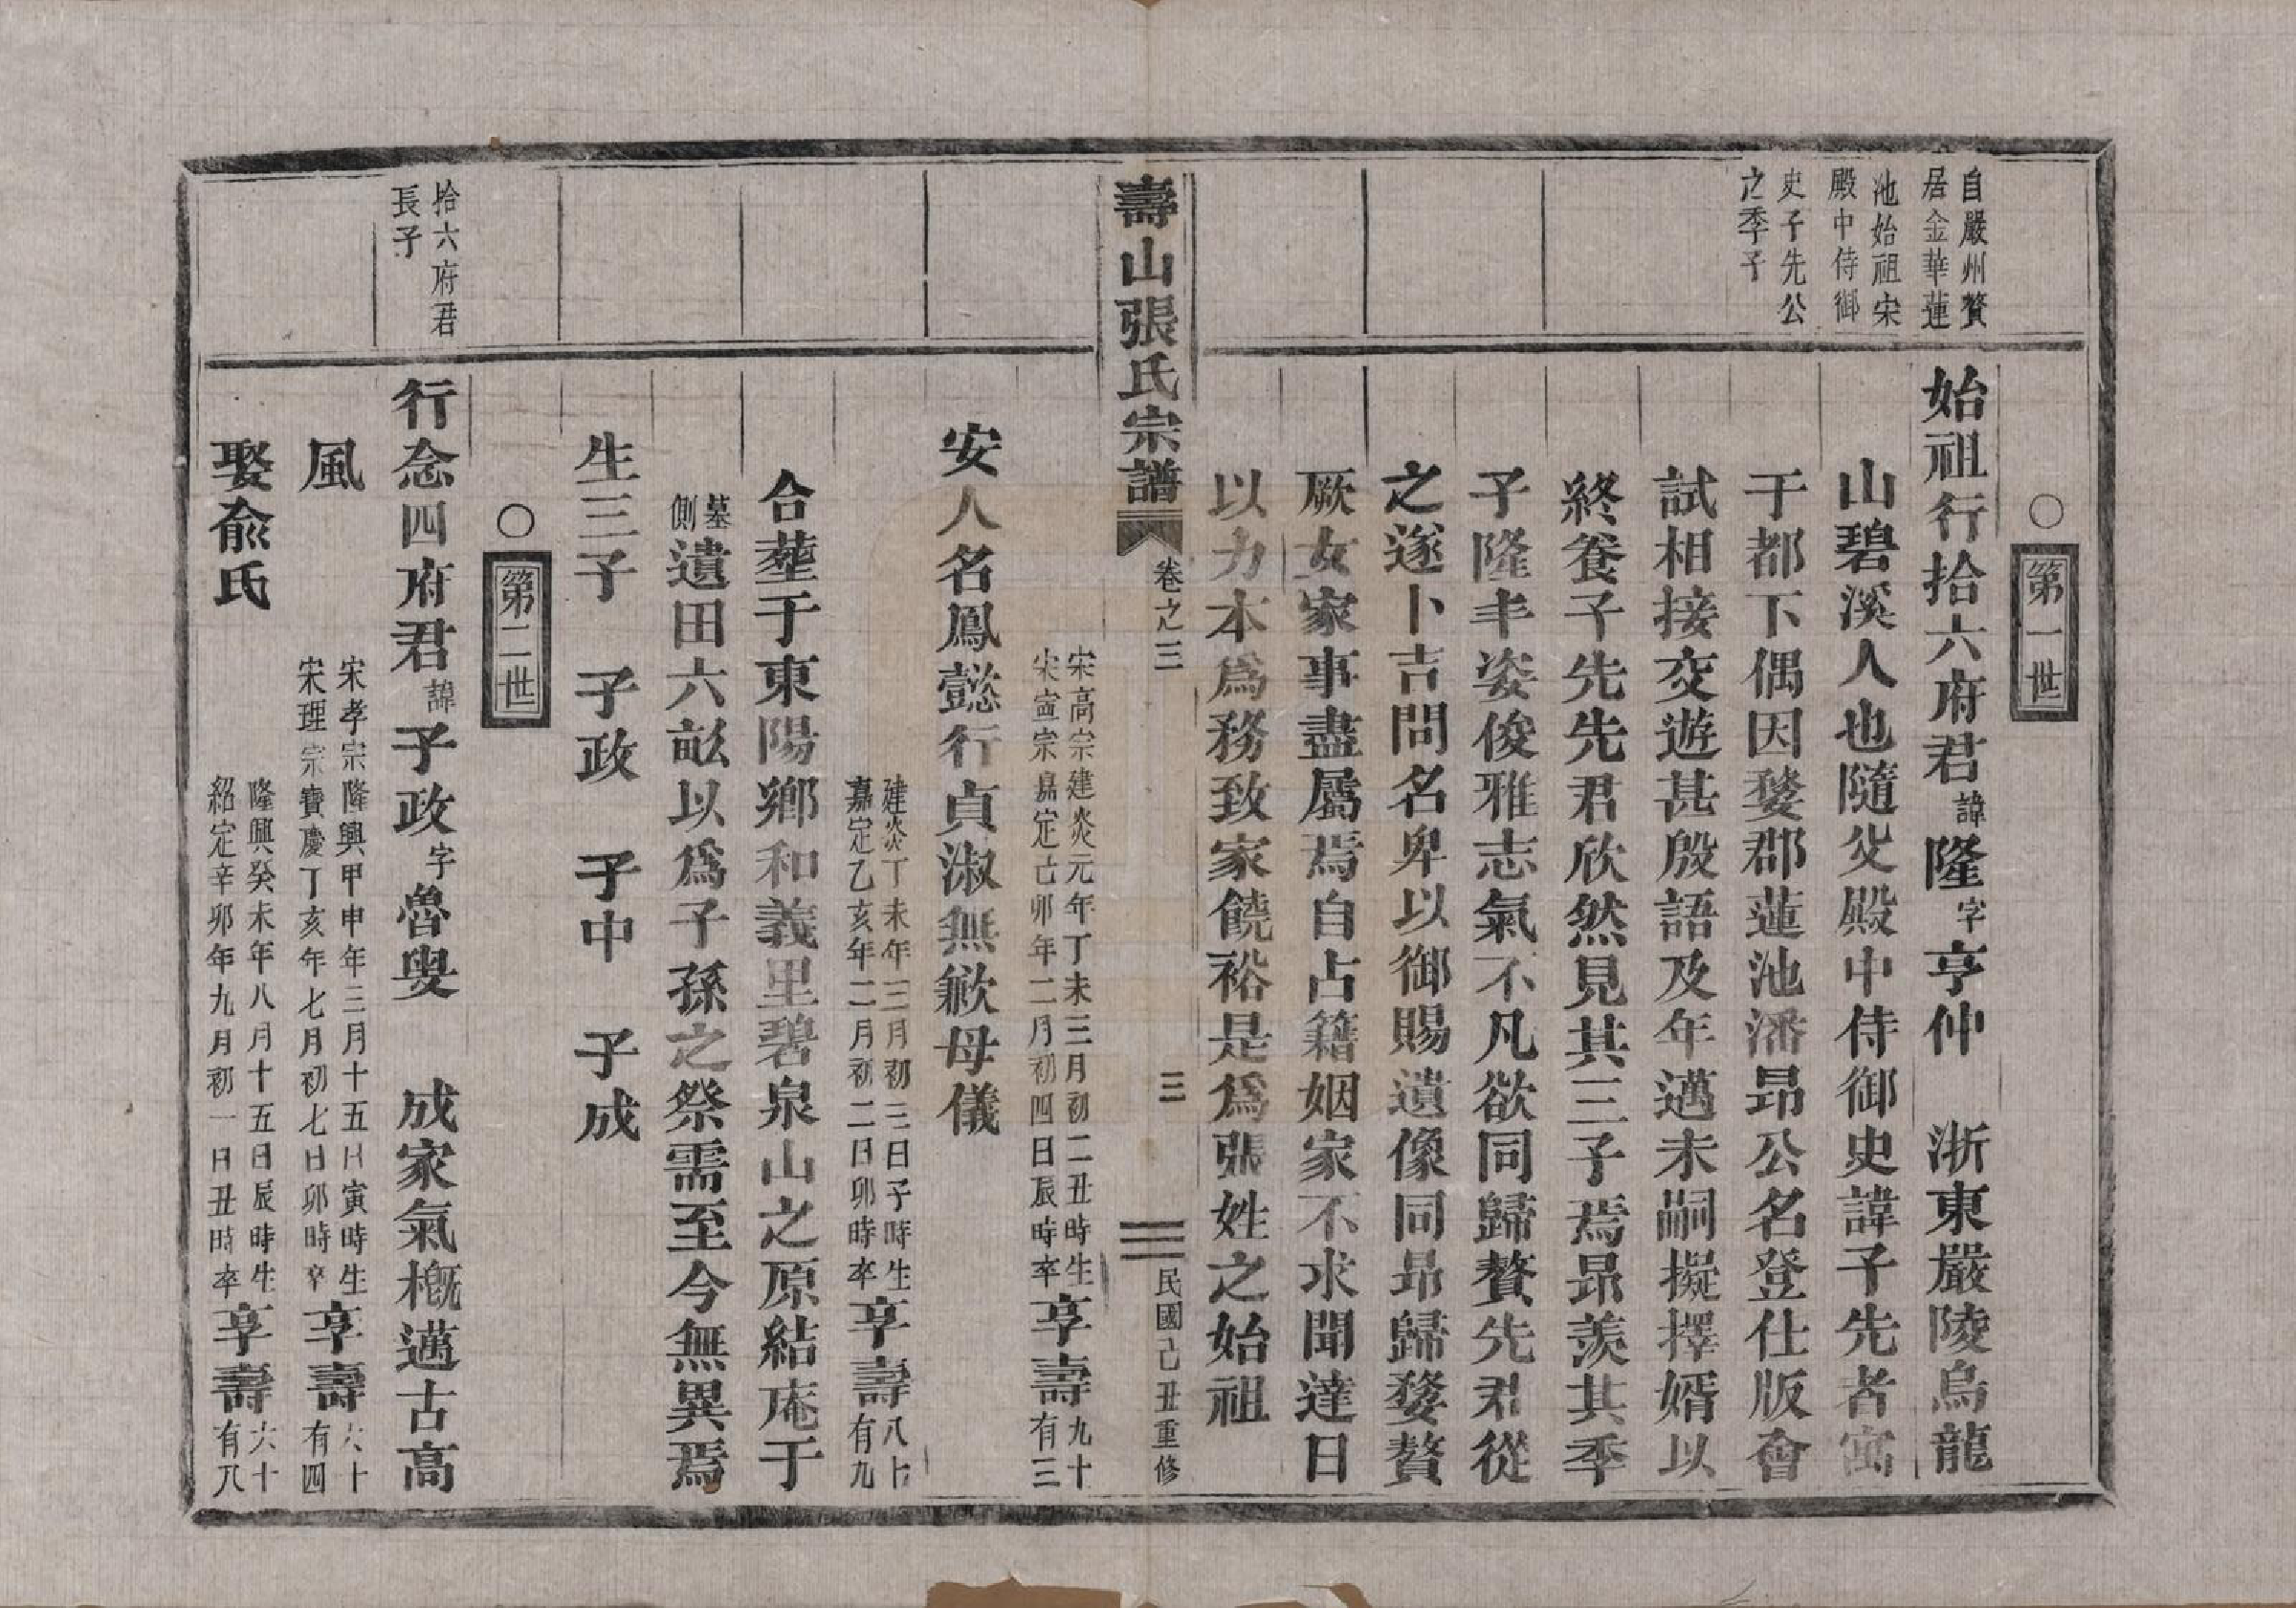 自嚴州贅
居金華蓮
池始祖宋
殿中侍御
史子先公
之季子
○第一世
始祖行拾六府君諱隆字亨仲　浙東嚴陵烏龍
山碧溪人也隨父殿中侍御史諱子先者寓
于都下偶因婺郡蓮池潘昂公名登仕版會
試相接交遊甚殷語及年邁未嗣擬擇婿以
終養子先先君欣然見其三子焉昂羨其季
子隆丰姿俊雅志氣不凡欲同歸贅先君從
之遂卜吉問名卑以御賜遺像同昂歸婺贅
厥女家事盡屬焉自占籍姻家不求聞達日
以力本爲務致家饒裕是爲張姓之始祖
壽山張氏宗譜　卷之三　三　民國己丑重修
宋高宗建炎元年丁未三月初二丑時生
宋寧宗嘉定己卯年二月初四日辰時卒
享壽九十
有三
安人名鳳懿行貞淑無歉母儀
建炎丁未年三月初三日子時生
嘉定乙亥年二月初二日卯時卒
享壽八十
有九
合塟于東陽鄉和義里碧泉山之原結庵于
墓
側遺田六畝以爲子孫之祭需至今無異焉
生三子　子政　子中　子成
○第二世
拾六府君
長子
行念四府君諱子政字魯叟　成家氣槪邁古高
風
宋孝宗隆興甲申年三月十五日寅時生
宋理宗寶慶丁亥年七月初七日卯時卒
享壽六十
有四
娶俞氏
隆興癸未年八月十五日辰時生
紹定辛卯年九月初一日丑時卒
享壽六十
有八